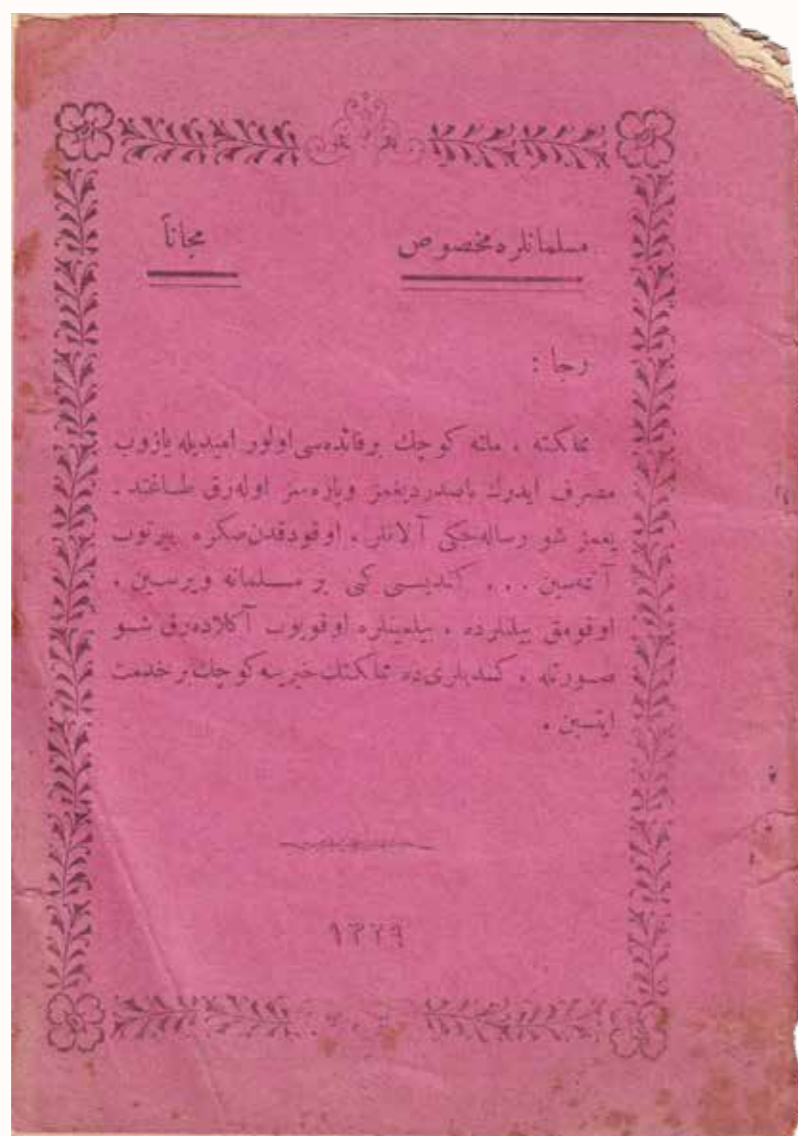 مسلمانلره مخصوص مجاناً
رجا :
مملكته ، ملته كوچك برفائده‌سی اولور اميديله يازوب
مصرف ايدرك باصدرديغمز وپاره‌سز اوله‌رق طاغتد ـ
يغمز شو رساله‌جكی آلانلر ، اوقودقدن صكره ييرتوب
آتمه‌سين . . . كنديسی كبی بر مسلمانه ويرسين .
اوقومق بيلنلرده ، بيلمينلره اوقويوب آكلاده‌رق شو
صورتله ، كنديلری‌ده مملكتك خيرينه كوچك بر خدمت
ايتسين .
١٣٢٩